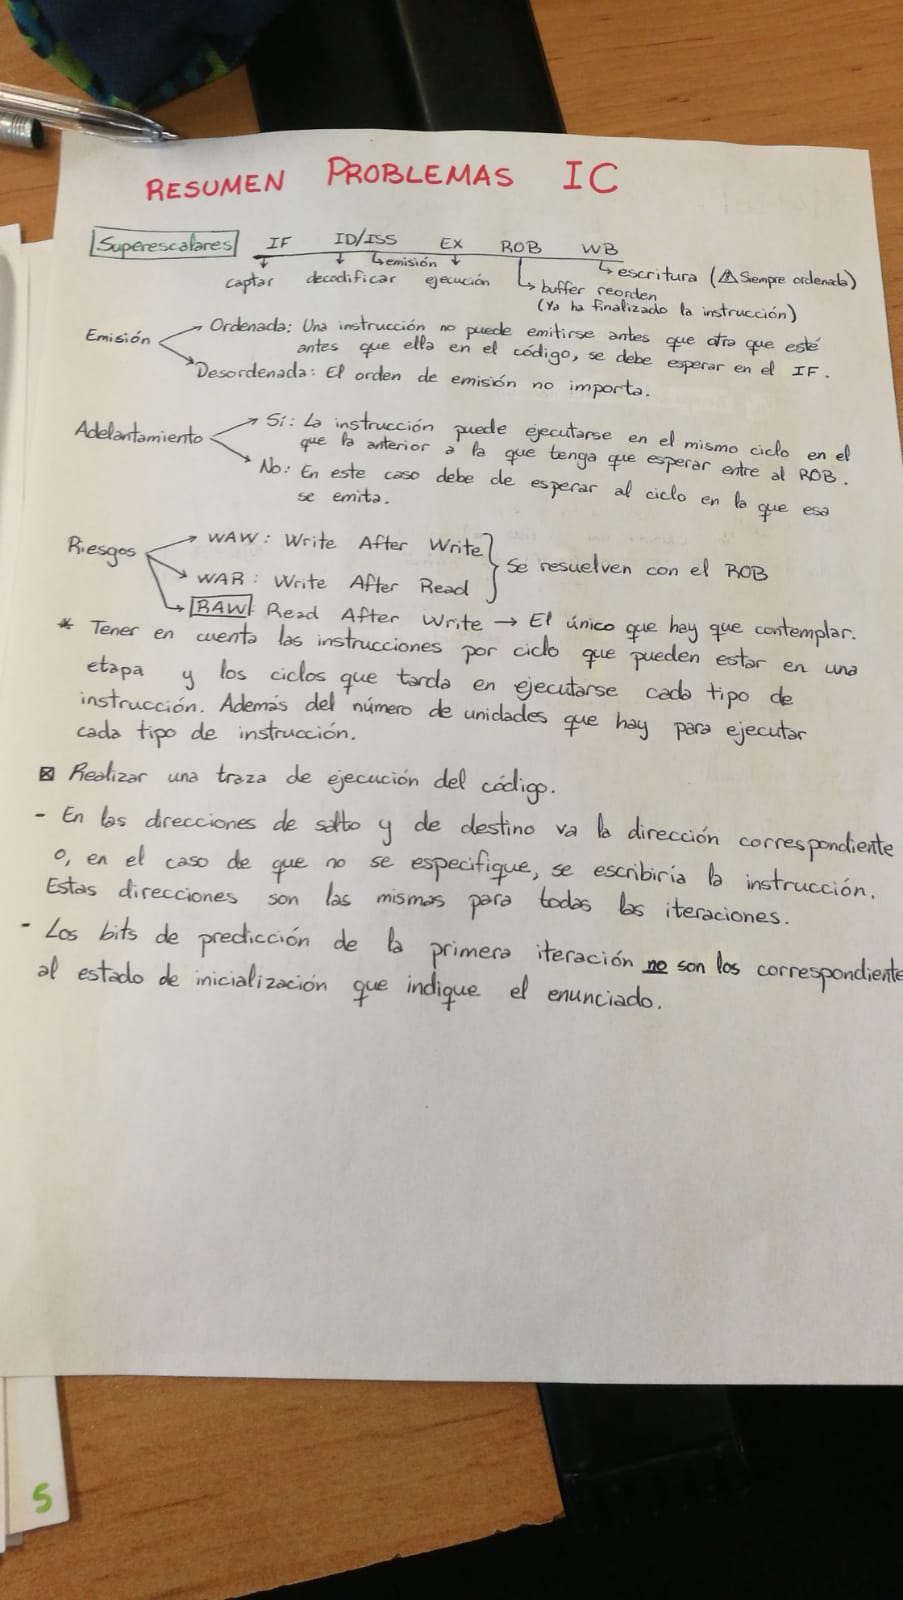 RESUMEN PROBLEMAS IC
Superescalares IF ID/ISS EX ROB WB
captar decodificar emisión ejecución escritura (⚠ Siempre ordenada)
buffer reorden
(Ya ha finalizado la instrucción)
Emisión Ordenada: Una instrucción no puede emitirse antes que otra que esté
antes que ella en el código, se debe esperar en el IF.
Desordenada: El orden de emisión no importa.
Adelantamiento Sí: La instrucción puede ejecutarse en el mismo ciclo en el
que la anterior a la que tenga que esperar entre al ROB.
No: En este caso debe de esperar al ciclo en la que esa
se emita.
Riesgos WAW: Write After Write
WAR: Write After Read
Se resuelven con el ROB
RAW: Read After Write → El único que hay que contemplar.
* Tener en cuenta las instrucciones por ciclo que pueden estar en una
etapa y los ciclos que tarda en ejecutarse cada tipo de
instrucción. Además del número de unidades que hay para ejecutar
cada tipo de instrucción.
⊠ Realizar una traza de ejecución del código.
- En las direcciones de salto y de destino va la dirección correspondiente
o, en el caso de que no se especifique, se escribiría la instrucción.
Estas direcciones son las mismas para todas las iteraciones.
- Los bits de predicción de la primera iteración no son los correspondiente
al estado de inicialización que indique el enunciado.
5